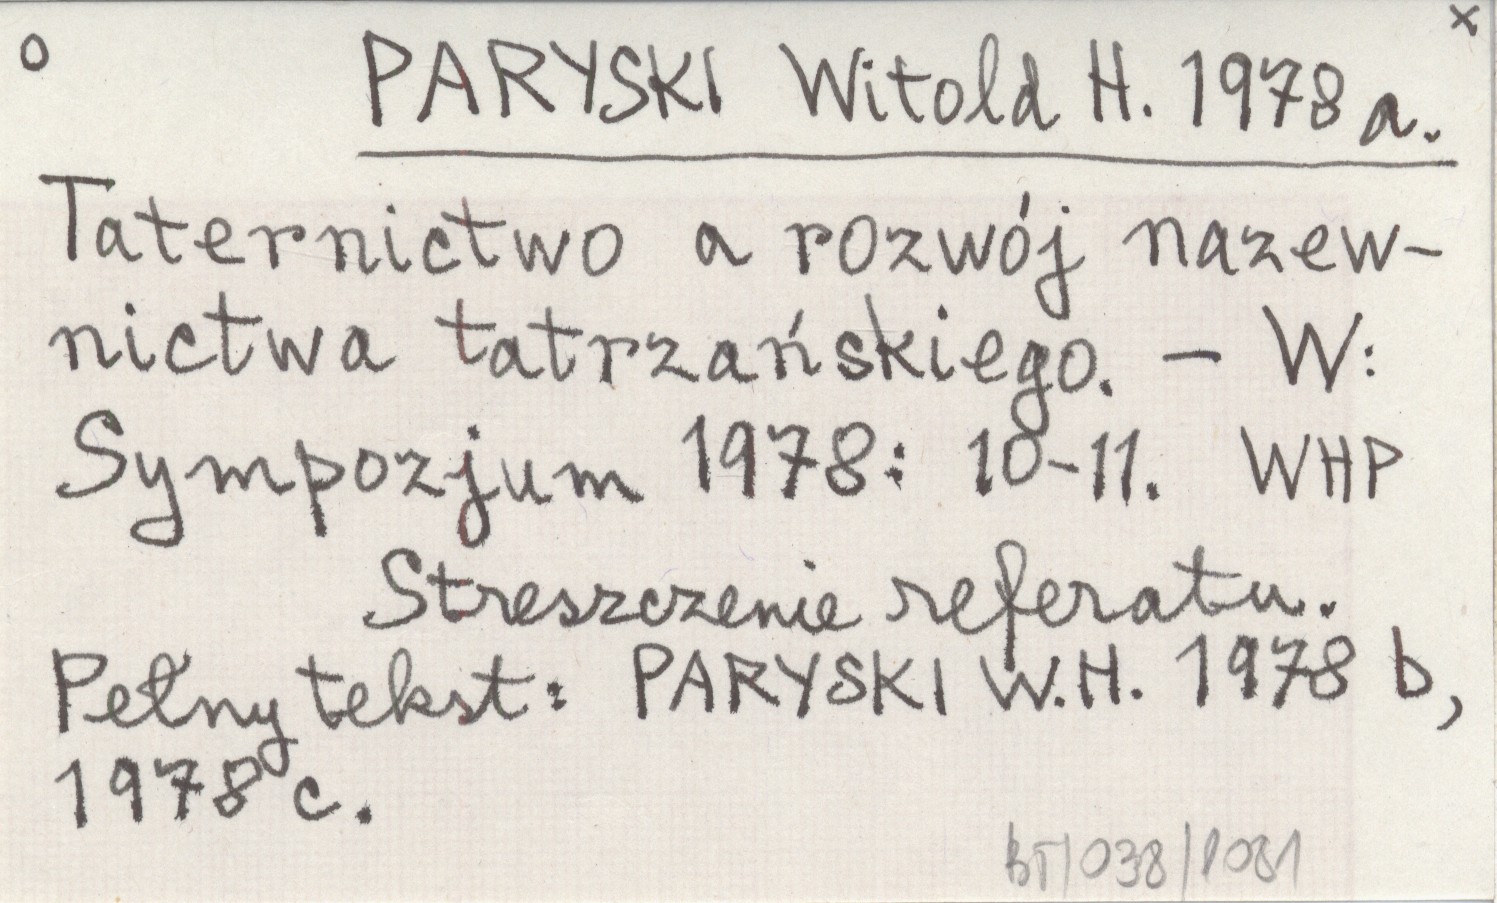 o x
PARYSKI Witold H. 1978 a.
Taternictwo a rozwój nazew-
nictwa tatrzańskiego. – W:
Sympozjum 1978: 10-11. WHP
Streszczenie referatu.
Pełny tekst: PARYSKI W.H. 1978 b,
1978 c.
BT/038/1081